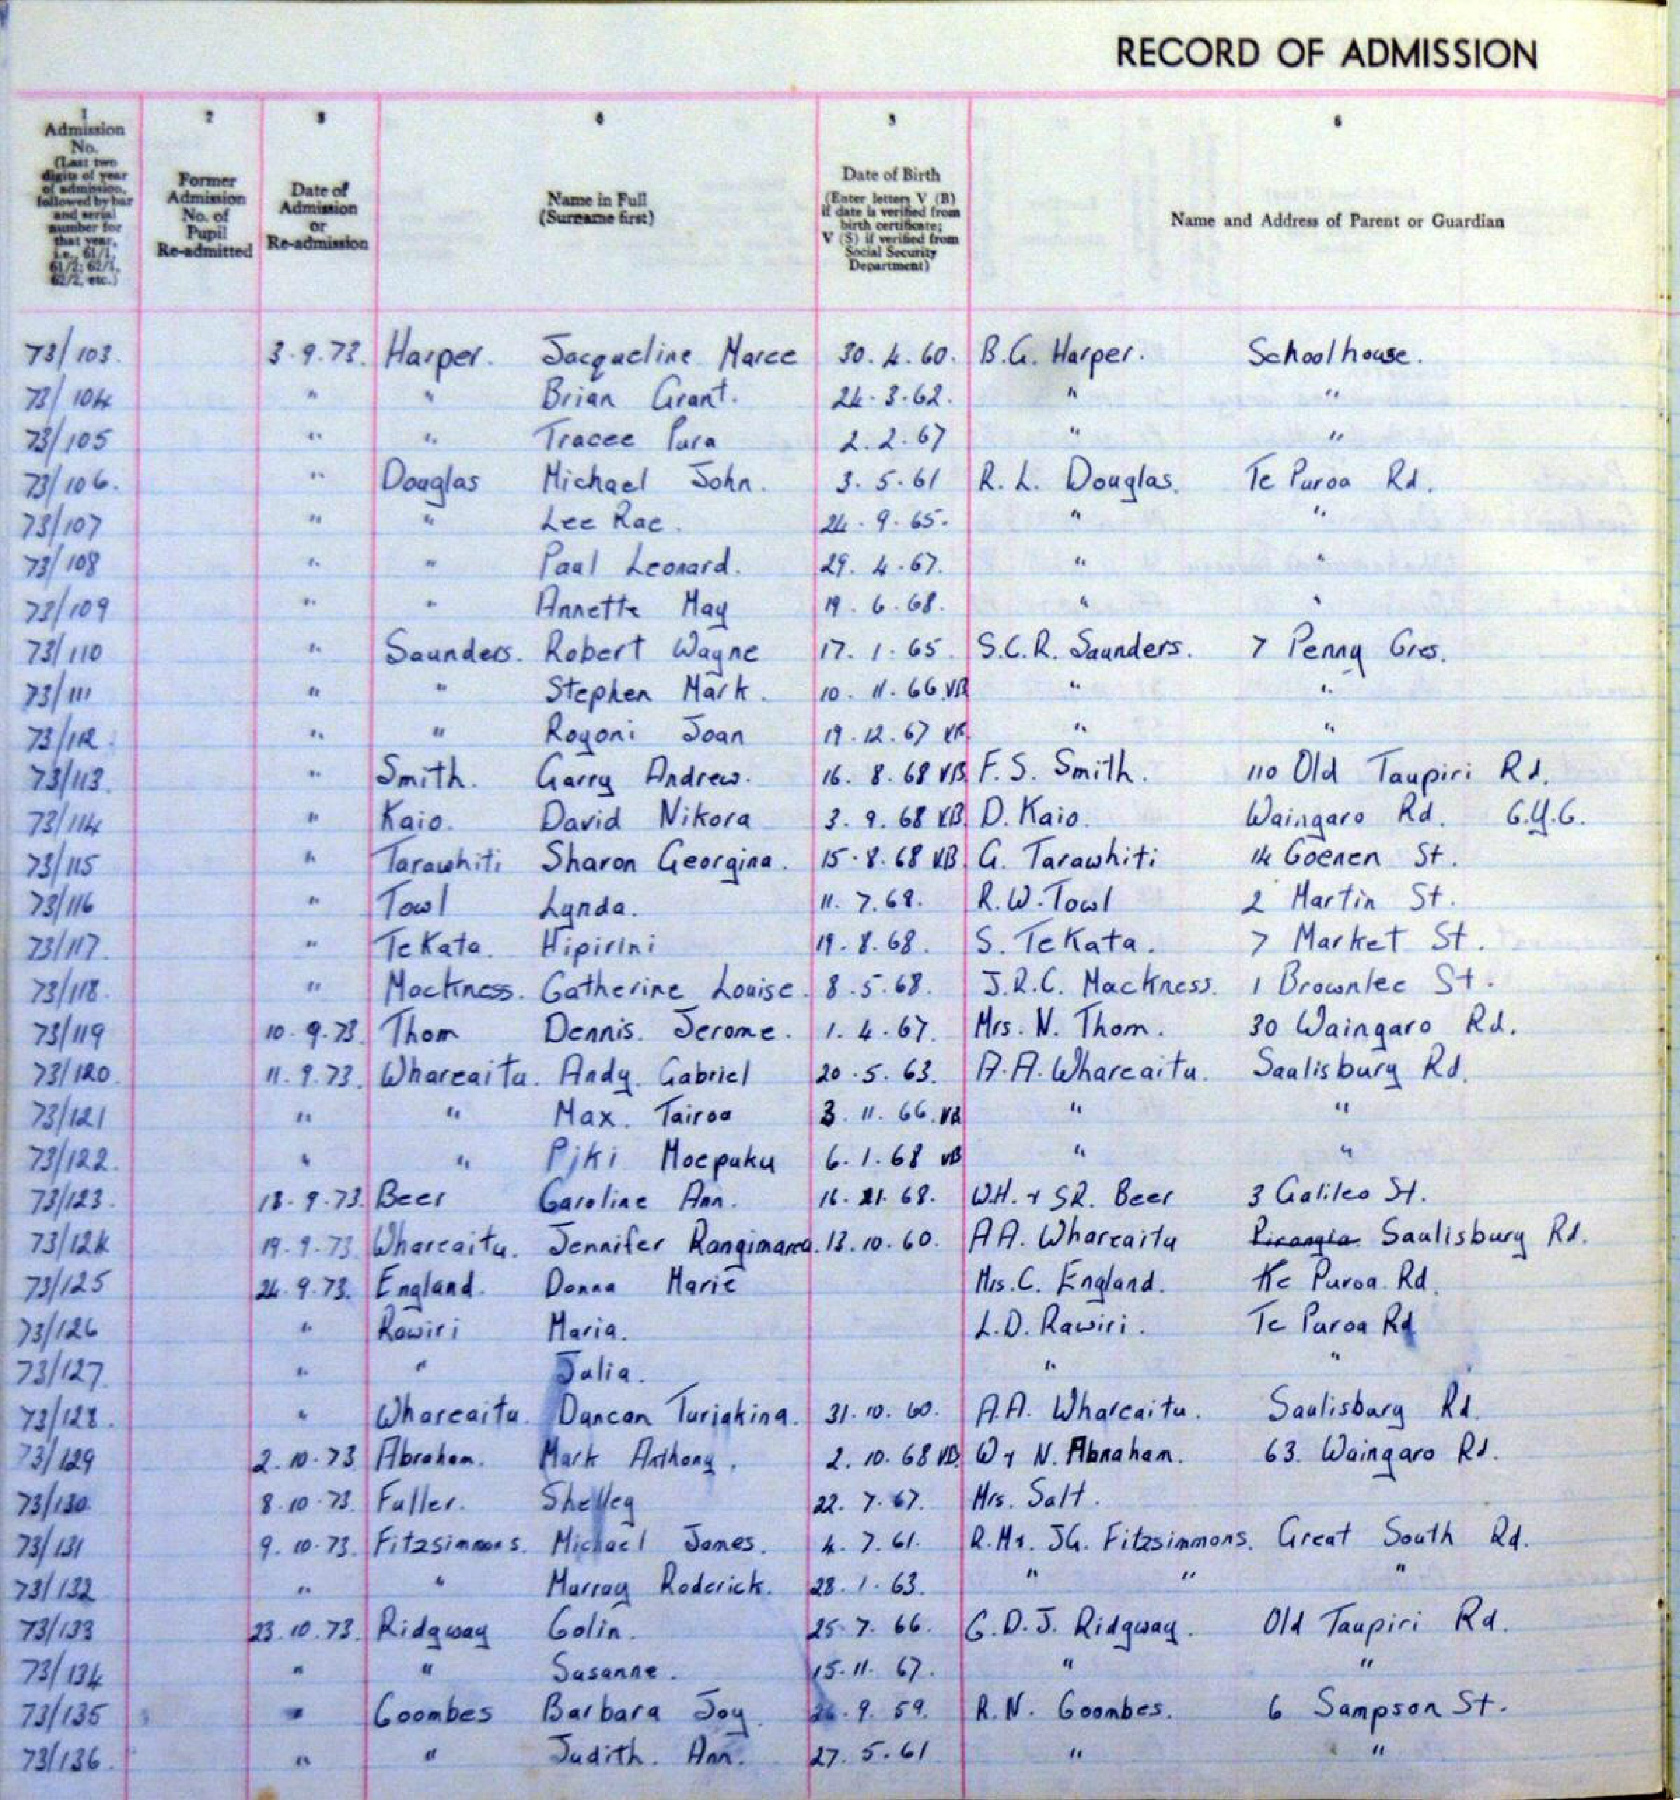 RECORD OF ADMISSION
1 2 3 4 5 6
Admission No. (Last two digits of year of admission, followed by bar and serial number for that year, i.e., 61/1, 61/2; 62/1, 62/2, etc.)
Former Admission No. of Pupil Re-admitted
Date of Admission or Re-admission
Name in Full (Surname first)
Date of Birth (Enter letters V (B) if date is verified from birth certificate; V (S) if verified from Social Security Department)
Name and Address of Parent or Guardian
73/103. 3.9.73. Harper. Jacqueline Maree 30.4.60. B.G. Harper. Schoolhouse.
73/104 " " Brian Grant. 24.3.62. " "
73/105 " " Tracee Pura 2.2.67 " "
73/106. " Douglas Michael John. 3.5.61 R. L. Douglas. Te Puroa Rd.
73/107 " " Lee Rae. 24.9.65. " "
73/108 " " Paul Leonard. 29.4.67. " "
73/109 " " Annette May 19.6.68. " "
73/110 " Saunders. Robert Wayne 17.1.65 S.C.R. Saunders. 7 Penny Cres.
73/111 " " Stephen Mark. 10.11.66 VB " "
73/112. " " Rogoni Joan 19.12.67 VB " "
73/113. " Smith. Garry Andrew. 16.8.68 VB F. S. Smith. 110 Old Taupiri Rd.
73/114 " Kaio. David Nikora 3.9.68 VB D. Kaio. Waingaro Rd. G.Y.G.
73/115 " Tarawhiti Sharon Georgina. 15.8.68 VB G. Tarawhiti 14 Goenen St.
73/116 " Towl Lynda. 11.7.68. R.W. Towl 2 Martin St.
73/117. " TeKata. Hipirini 19.8.68. S. TeKata. 7 Market St.
73/118. " Mackness. Catherine Louise. 8.5.68. J.R.C. Mackness. 1 Brownlee St.
73/119 10.9.73. Thom Dennis. Jerome. 1.4.67. Mrs. N. Thom. 30 Waingaro Rd.
73/120. 11.9.73. Whareaitu. Andy Gabriel 20.5.63. A.A. Whareaitu. Saulisbury Rd.
73/121 " " Max. Tairoa 3.11.66. VB " "
73/122. " " Piki Moepuku 6.1.68 VB " "
73/123. 18.9.73. Beer Caroline Ann. 16. 68. W.H. + S.R. Beer 3 Galileo St.
73/124 19.9.73 Whareaitu. Jennifer Rangimarea. 13.10.60. A A. Whareaitu Pirongia. Saulisbury Rd.
73/125 24.9.73. England. Donna Marie Mrs. C. England. Puroa Rd.
73/126 " Rawiri Maria. L.D. Rawiri. Te Puroa Rd
73/127. " " Julia. " "
73/128. " Whareaitu. Duncan Turiakina. 31.10.60. A.A. Whareaitu. Saulisbury Rd.
73/129 2.10.73 Abraham. Mark Anthony. 2.10.68 VB W + N. Abraham. 63. Waingaro Rd.
73/130. 8.10.73. Fuller. Shelley 22.7.67. Mrs. Salt.
73/131 9.10.73. Fitzsimmons. Michael James. 4.7.61. R.M + J.G. Fitzsimmons. Great South Rd.
73/132 " " Murray Roderick. 28.1.63. " " "
73/133 23.10.73. Ridgway Colin. 25.7.66. C.D.J. Ridgway. Old Taupiri Rd.
73/134 " " Susanne. 15.11.67. " "
73/135 " Coombes Barbara Joy. 26.9.59. R.N. Coombes. 6 Sampson St.
73/136. " " Judith. Ann. 27.5.61 " "